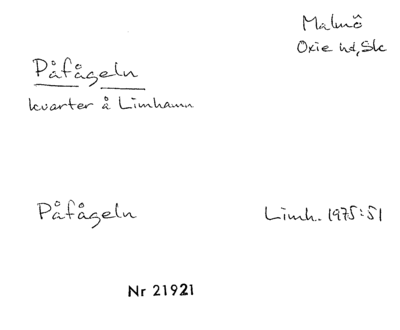 Malmö
Oxie hd, Sk
Påfågeln
kvarter å Limhamn
Påfågeln Limh. 1975:51
Nr 21921